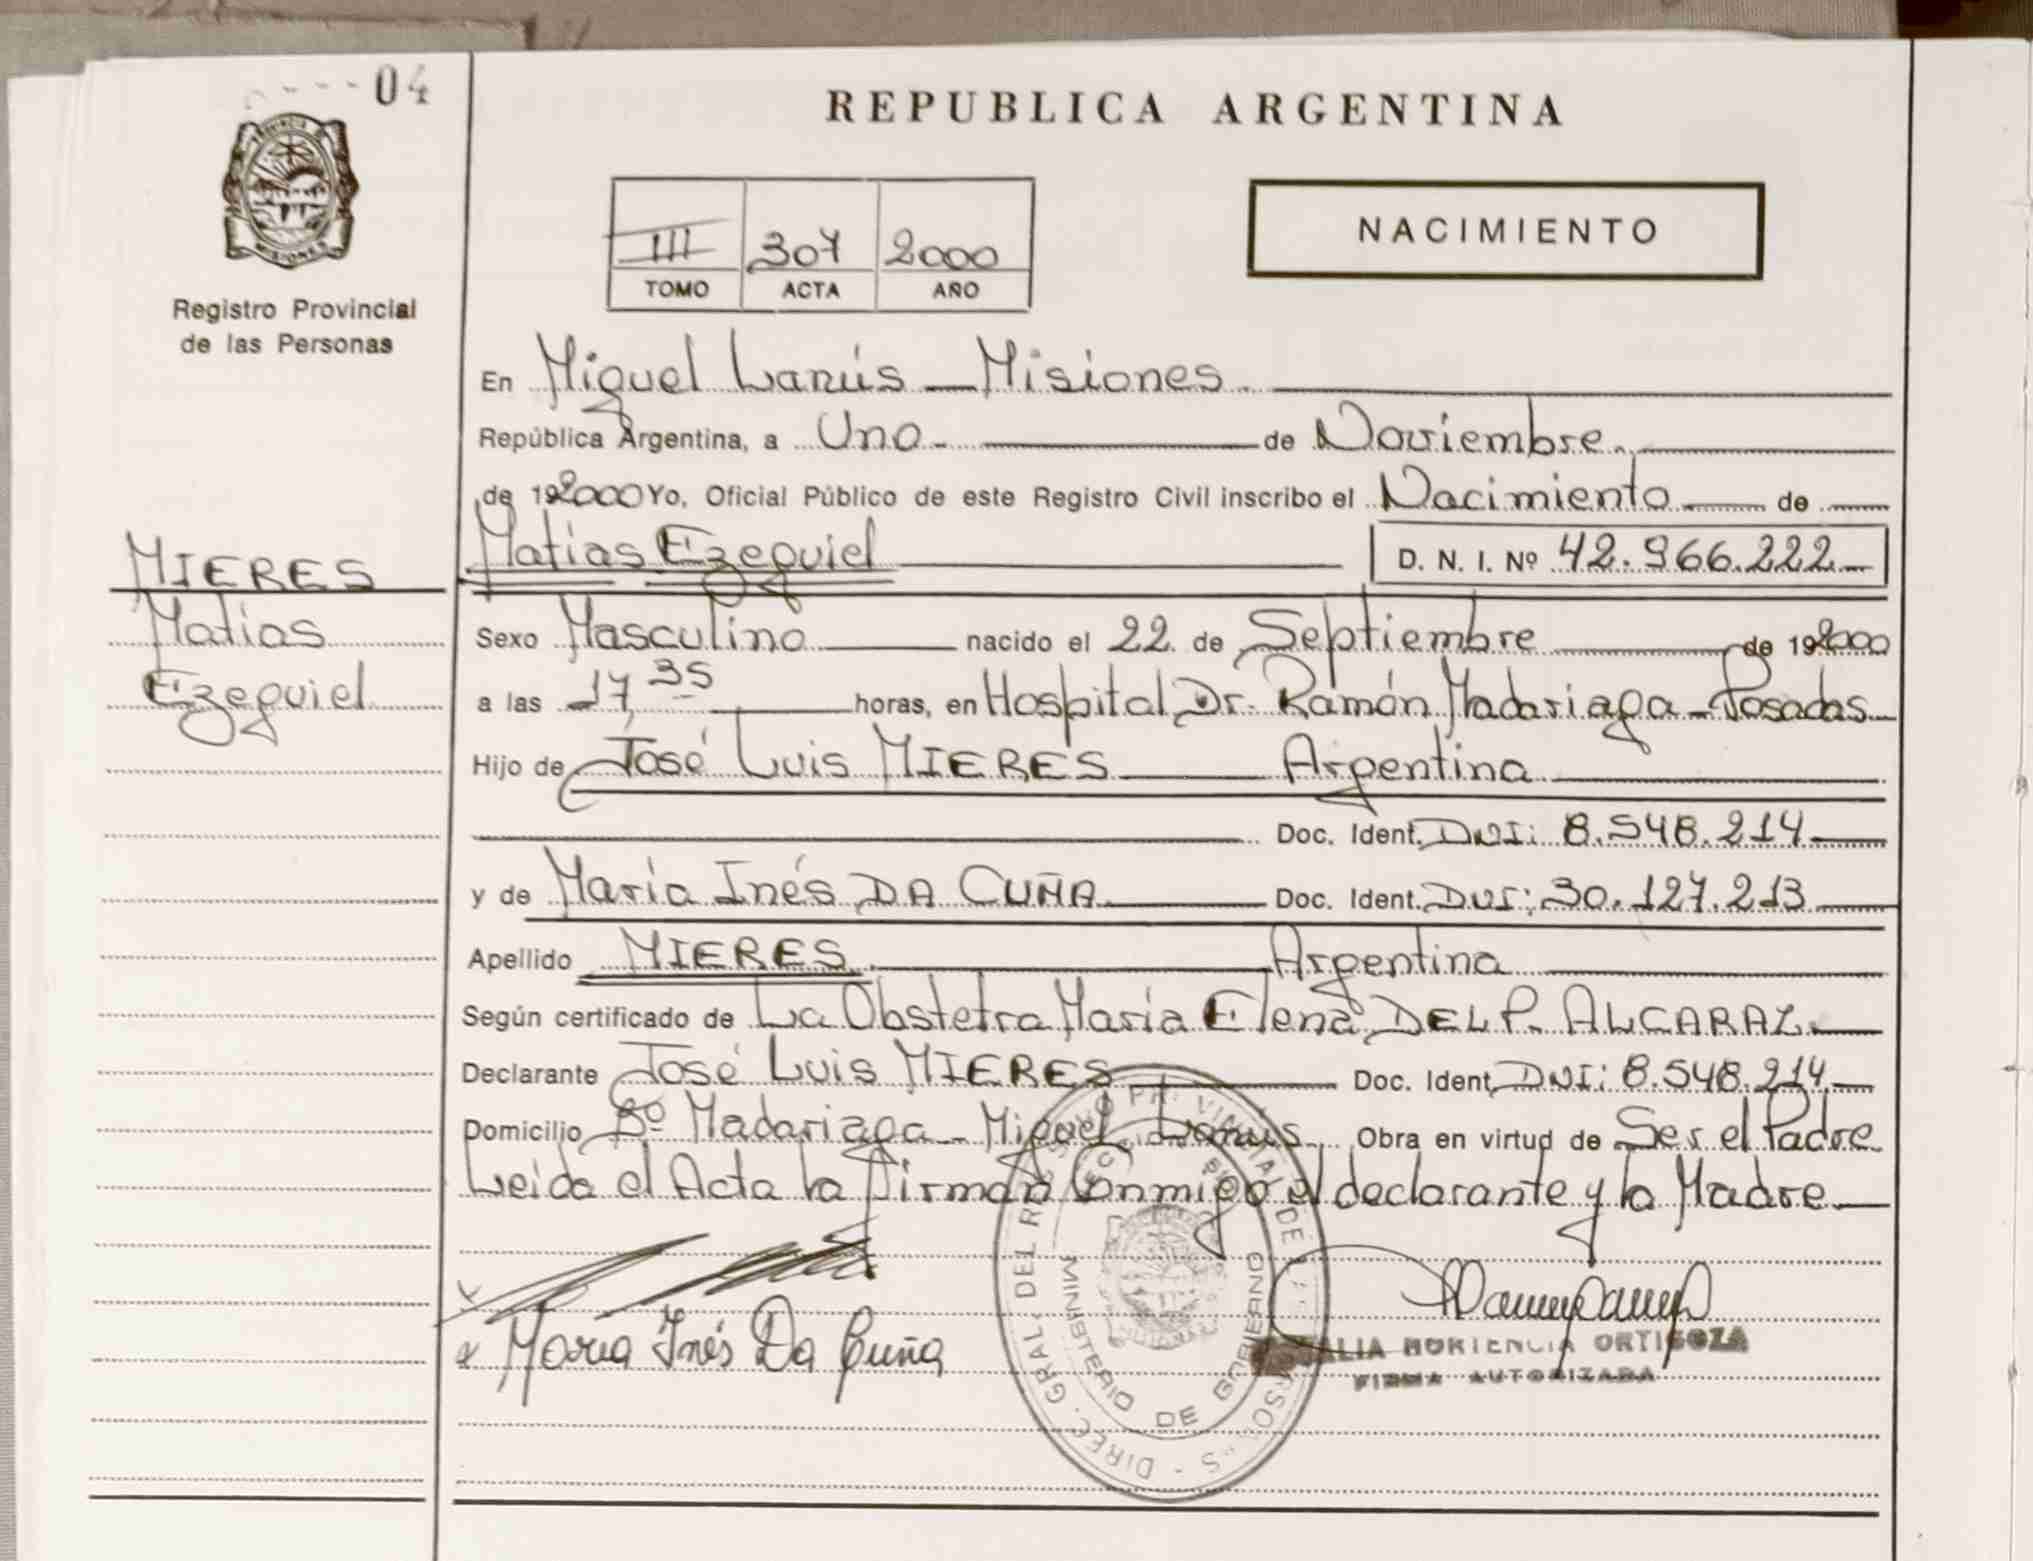 04
REPUBLICA ARGENTINA
NACIMIENTO
III 307 2000
TOMO ACTA AÑO
Registro Provincial
de las Personas
En Miguel Lanús - Misiones
República Argentina, a Uno de Noviembre
de 192000 Yo, Oficial Público de este Registro Civil inscribo el Nacimiento de
MIERES
Matias
Ezequiel
Matias Ezequiel D. N. I. Nº 42.966.222
Sexo Masculino nacido el 22 de Septiembre de 192000
a las 17,35 horas, en Hospital Dr. Ramón Madariaga - Posadas
Hijo de José Luis MIERES Argentina
Doc. Ident. DNI: 8.548.214
y de María Inés DA CUÑA Doc. Ident. DNI: 30.127.213
Apellido MIERES Argentina
Según certificado de La Obstetra María Elena DEL P. ALCARAZ
Declarante José Luis MIERES Doc. Ident. DNI: 8.548.214
Domicilio Bº Madariaga - Miguel Lanús Obra en virtud de Ser el Padre
Leida el Acta la firman Conmigo el declarante y la Madre
x María Inés Da Cuña
HORTENCIA ORTIGOZA
FIRMA AUTORIZADA
MINISTERIO DE GOBIERNO
DIREC. GRAL. DEL